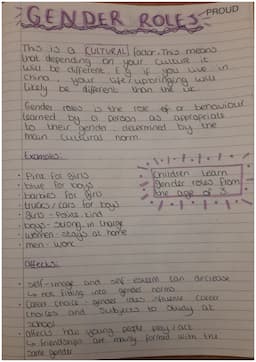 GENDER ROLES
PROUD
This is a CULTURAL factor. This means
that depending on your culture it
will be different. E.g if you live in
China, your life/upbringing will
likely be different than the UK.
Gender roles is the role or a behaviour
learned by a person as appropriate
to their gender, determined by the
main cultural norm.
Examples:
• Pink for girls
• blue for boys
• barbies for girls
• trucks/cars for boys
• girls - kind
• boys - strong, in charge
• women - stays at home
• men - work
Children learn
gender roles from
the age of 3
Affects:
• self-image and self-esteem can decrease
↳ not fitting into gender norms
• Career choice - gender roles career
choices and subjects to study at
school
• affects how young people play/act
↳ friendships are mostly formed with the
same gender